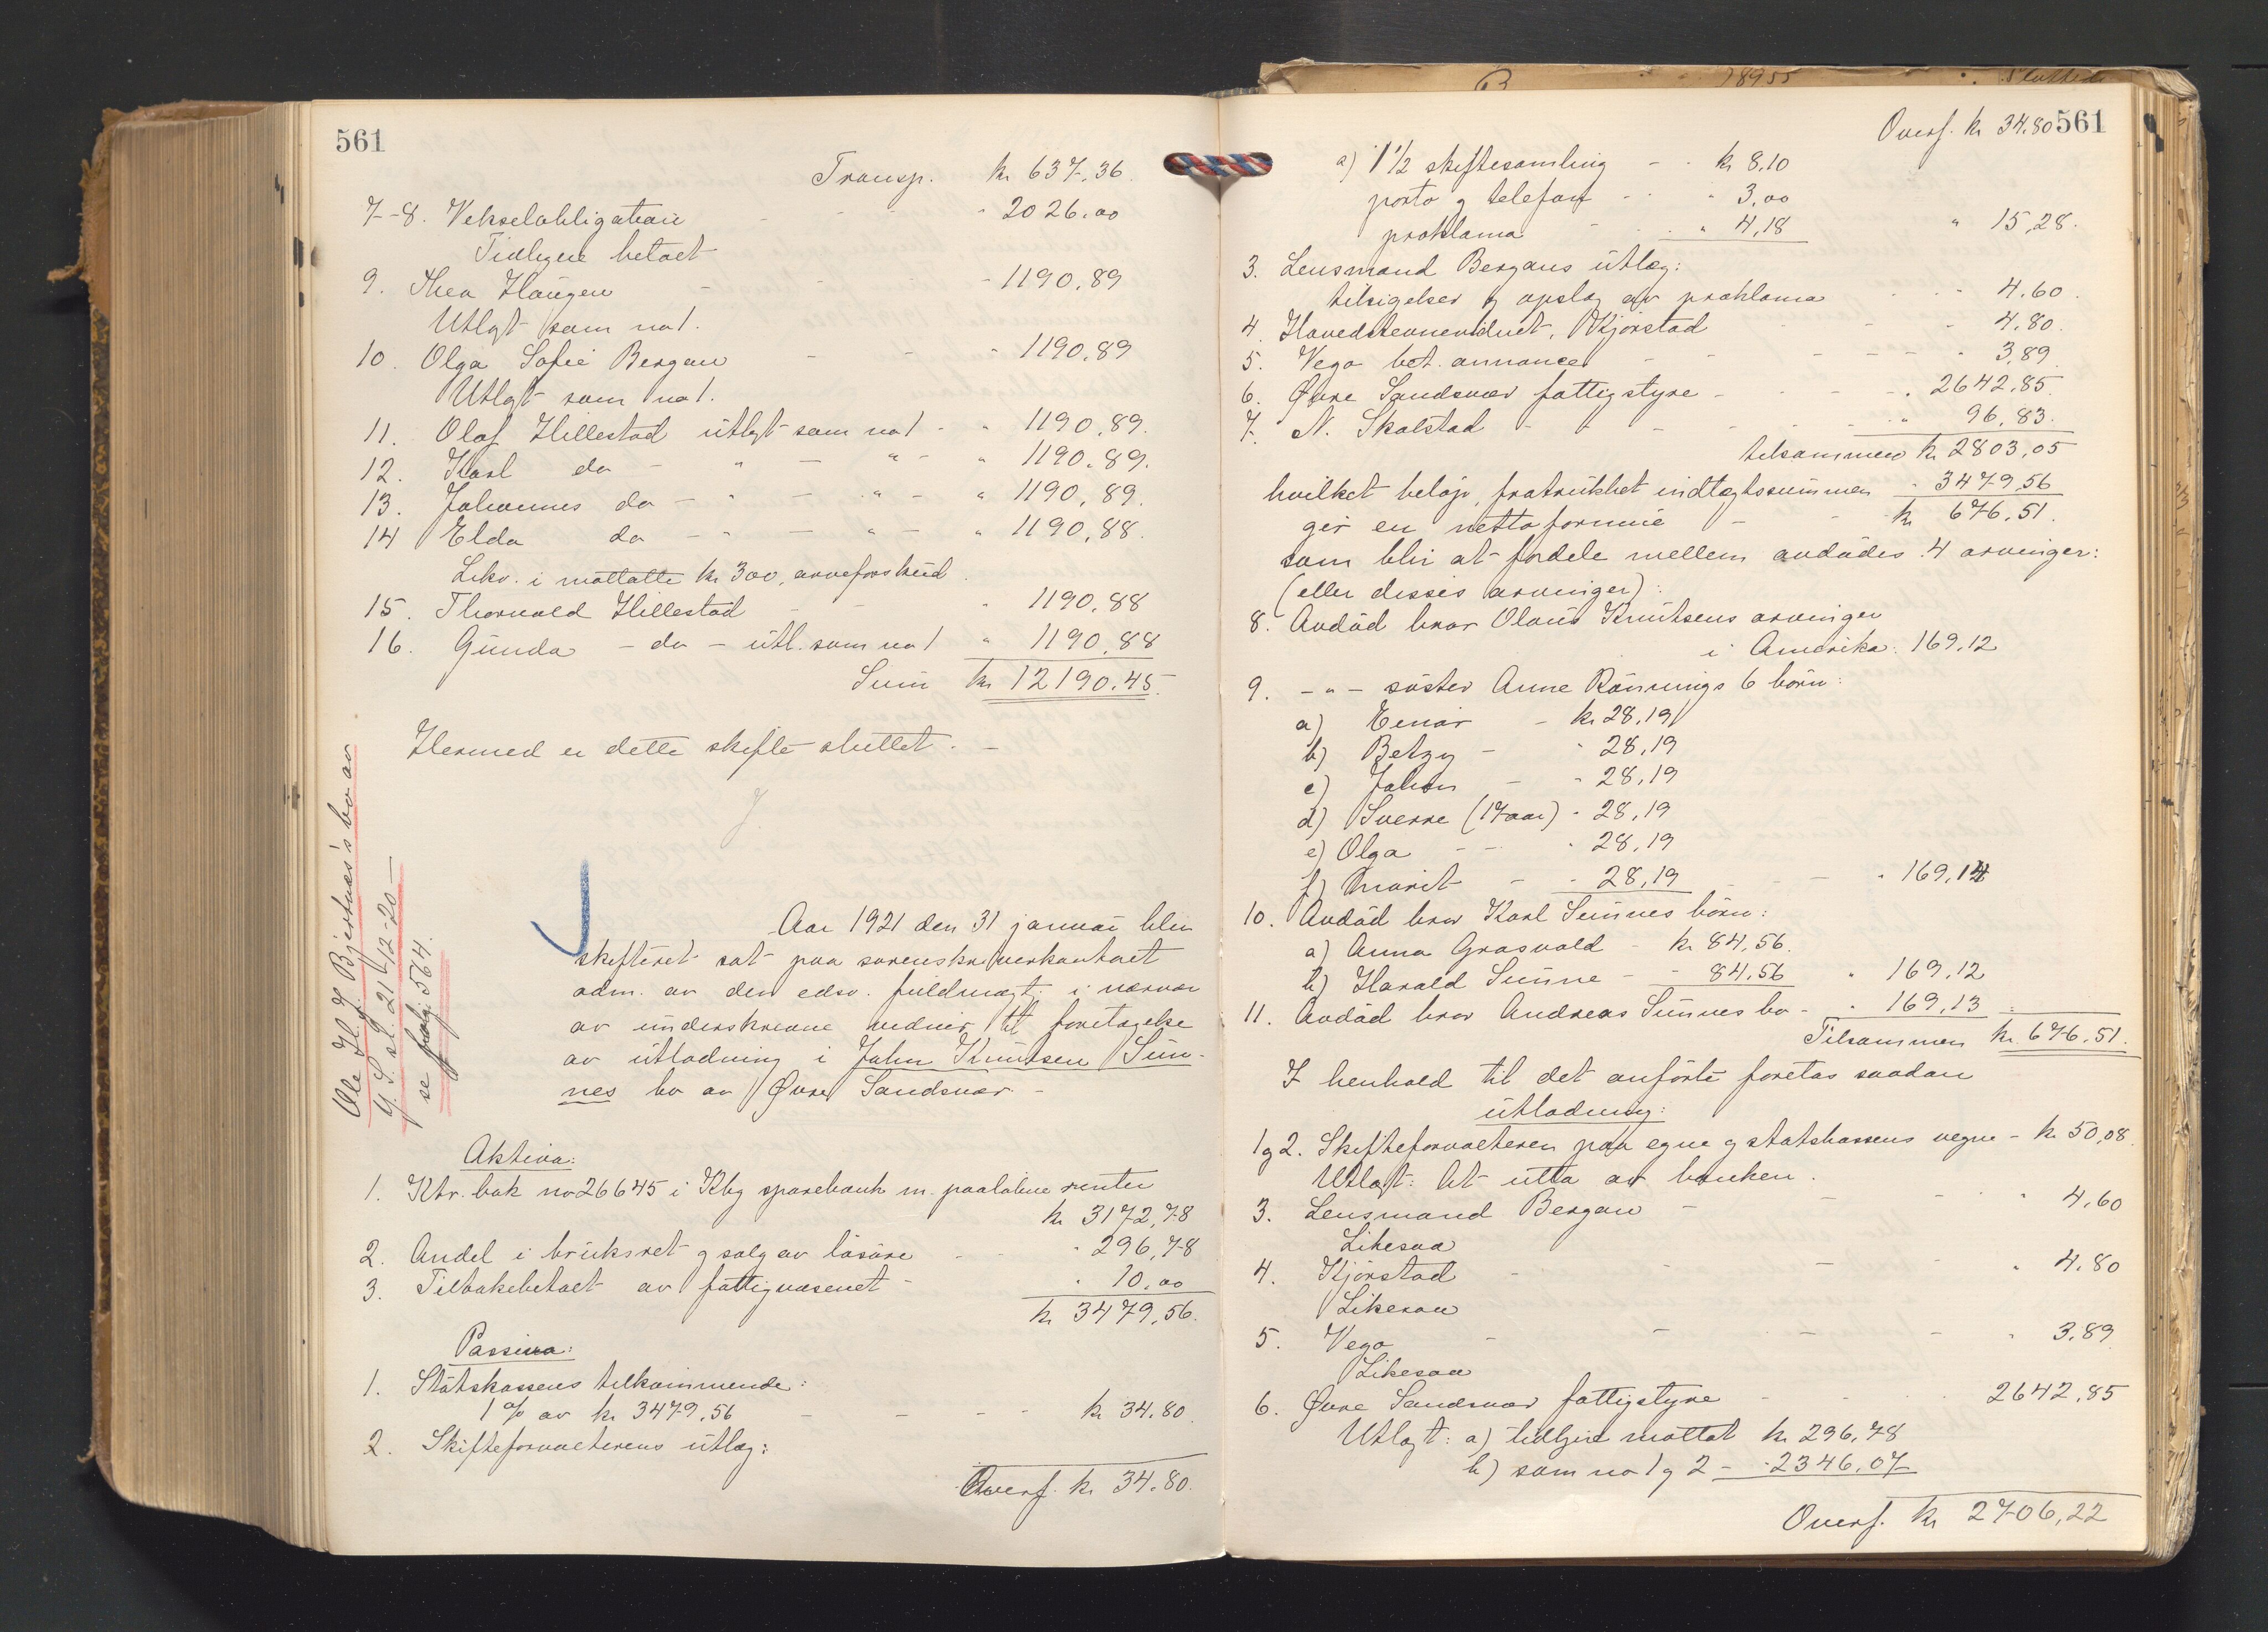 561
Transp. kr 637,36.
7-8. Vekselobligation - - - " 2026.00
Tidligere betalt
9. Thea Haugen - - - " 1190,89
Utlagt som no 1.
10. Olga Sofie Bergan - - " 1190,89
Utlagt som no 1.
11. Olaf Hillestad utlagt som no 1 - " 1190,89.
12. Karl do - " - " - " 1190.89.
13. Johannes do - " - " - " 1190,89.
14 Elda do - " - " - " 1190,88.
Likv. i mottatte kr 300, arveforskud.
15. Thorvald Hillestad - - " 1190,88
16. Gunda - do - utl. som no 1 " 1190,88
Sum kr 12190.45.
Hermed er dette skifte sluttet. -
Ole H. J. Bjertnæs's bo av
Y. S. sl. 21/12-20 -
se folg. 564.
Aar 1921 den 31 januar blev
skifteret sat paa sorenskriverkontoret
adm. av den edsv. fuldmægt. i nærvær
av underskrevne vidner til foretagelse
av utlodning i John Knutsen Sun-
nes bo av Øvre Sandsvær -
Aktiva:
1. Ktr. bok no 26645 i Kbg sparebank m. paaløbne renter
kr 3172,78
2. Andel i bruksret og salg av løsøre - - " 296,78
3. Tilbakebetalt av fattigvæsenet - " 10,00
kr 3479,56.
Passiva:
1. Statskassens tilkommende:
1 % av kr 3479.56 - - - - kr 34.80.
2. Skifteforvalterens utlæg:
Overf. kr 34.80.
Overf. kr 34.80 561
a) 1 1/2 skiftesamling - - kr 8.10
porto og telefon - - " 3,00
proklama - - " 4,18 " 15,28.
3. Lensmand Bergans utlæg:
tilsigelser og opslag av proklama - - - 4.60.
4. Hovedstevnevidnet, Kjørstad - - - 4.80.
5. Vego bet. annonce - - - - - " 3,89
6. Øvre Sandsvær fattigstyre - - - - " 2642.85.
7. N. Skalstad - - - - - - " 96,83.
tilsammen kr 2803,05
hvilket beløp, fratrukket indtægtssummen " 3479,56
gir en netto formue - - kr 676,51.
som blir at fordele mellem avdødes 4 arvinger:
(eller disses arvinger):
8. Avdød bror Olaus Knutsens arvinger
i Amerika: 169,12
9. - " - søster Anne Rønnings 6 børn:
a) Einar - kr. 28,19
b) Betzy - " 28,19
c) Johan - " 28,19
d) Sverre (17 aar) " 28,19
e) Olga - - " 28,19
f) Marit - - 28,19 - - - " 169,14
10. Avdød bror Karl Sunnes børn:
a) Anna Grosvold - kr 84,56.
b) Harald Sunne - - 84,56 " 169,12
11. Avdød bror Andreas Sunnes bo - " 169,13
Tilsammen kr. 676,51.
I henhold til det anførte foretas saadan
utlodning:
1 og 2. Skifteforvalteren paa egne og statskassens vegne - kr 50,08.
Utlagt: At utta av banken.
3. Lensmand Bergan - - - " 4.60
Likesaa
4. Kjørstad - - - - " 4.80
Likesaa
5. Vego - - - - " 3.89
Likesaa
6. Øvre Sandsvær fattigstyre - - - 2642,85
Utlagt: a) tidligere mottat kr 296,78
b) som no 1 og 2 - " 2346.07
Overf. kr 2706,22